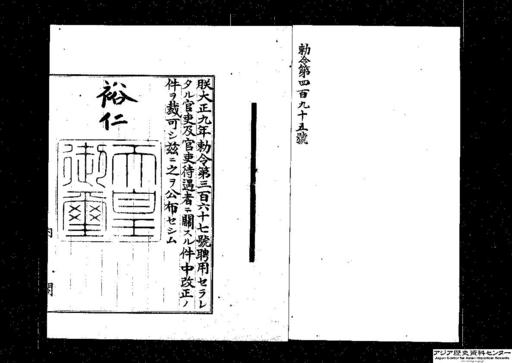 勅令第四百九十五號
朕大正九年勅令第三百六十七號聘用セラレ
タル官吏及官吏待遇者ニ關スル件中改正ノ
件ヲ裁可シ茲ニ之ヲ公布セシム
裕仁
天皇
御璽
内閣
アジア歴史資料センター
Japan Center for Asian Historical Records